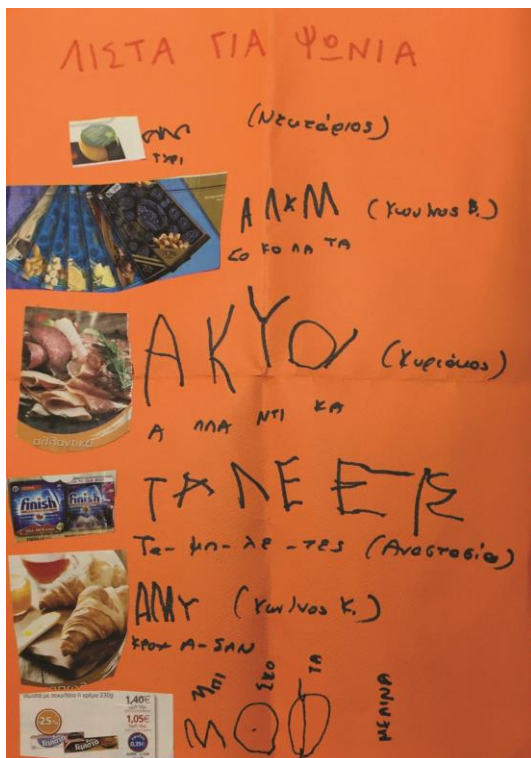 ΛΙΣΤΑ ΓΙΑ ΨΩΝΙΑ
(Νεκτάριος)
ΤΥΡΙ
ΑΛΚΜ (Κων/νος Β.)
ΣΟ ΚΟ ΛΑ ΤΑ
ΑΚΥΟ (Κυριάκος)
αλλαντικά
Α ΛΛΑ ΝΤΙ ΚΑ
finish finish
ΤΑΛΕΕ
Τα-μπ-λέ-τες (Αναστασία)
ΑΜΥ (Κων/νος Κ.)
ΚΡΟΥ Α-ΣΑΝ
ΜΠΙ ΣΚΟ ΤΑ
ΜΕΛΙΝΑ
1,40€
25%
1,05€
Γεμιστά